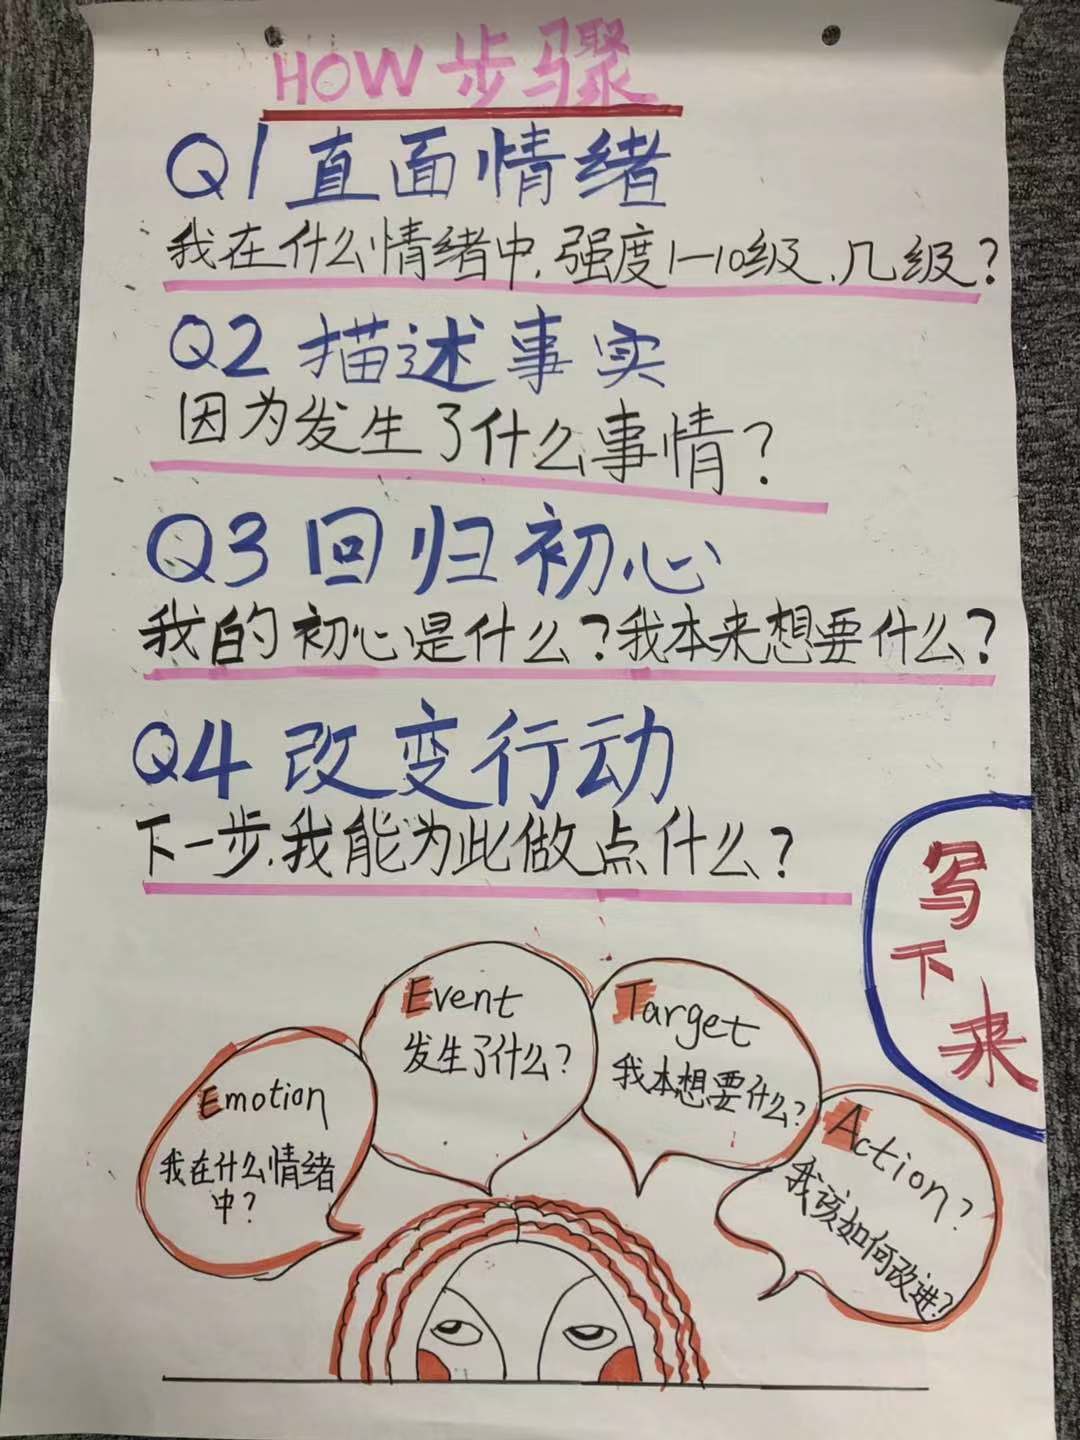 HOW步骤
Q1直面情绪
我在什么情绪中,强度1-10级、几级?
Q2描述事实
因为发生了什么事情?
Q3回归初心
我的初心是什么?我本来想要什么?
Q4改变行动
下一步,我能为此做点什么?
写
下
来
Event
发生了什么?
Target
我本想要什么?
Emotion
我在什么情绪
中?
Action?
我该如何改进?